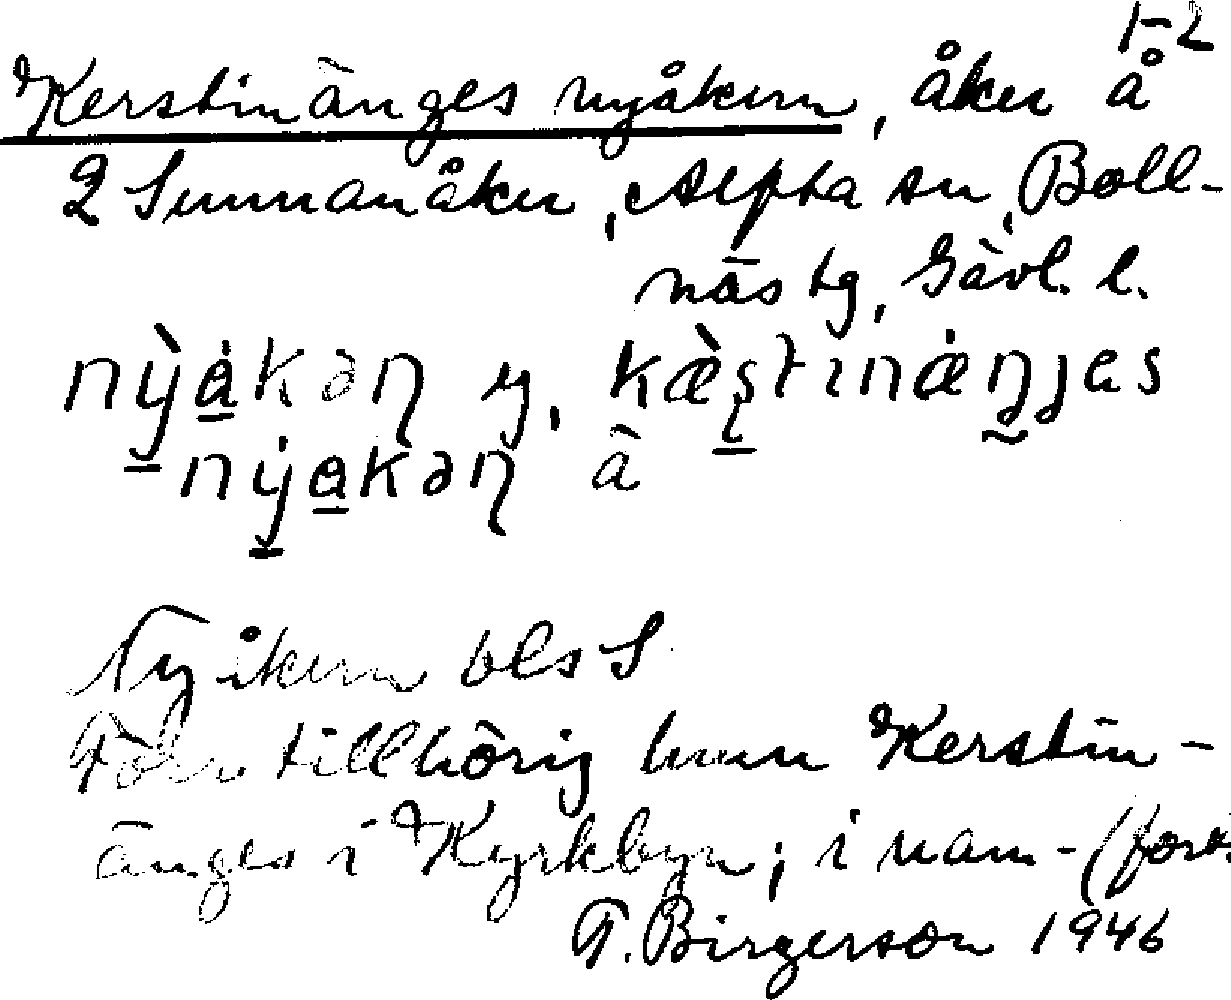 1-2
Kerstinänges nyåkern, åker å
2 Sunnanåker, Alfta sn, Boll-
näs tg, Gävl. l.
nỳåkəɳ y, kæ̀ştınæŋjes
nyåkəɳ ä
Nyåkern bls S
Förr tillhörig hmn Kerstin-
änges i Kyrkbyn; i nam- (forts.
T. Birgerson 1946